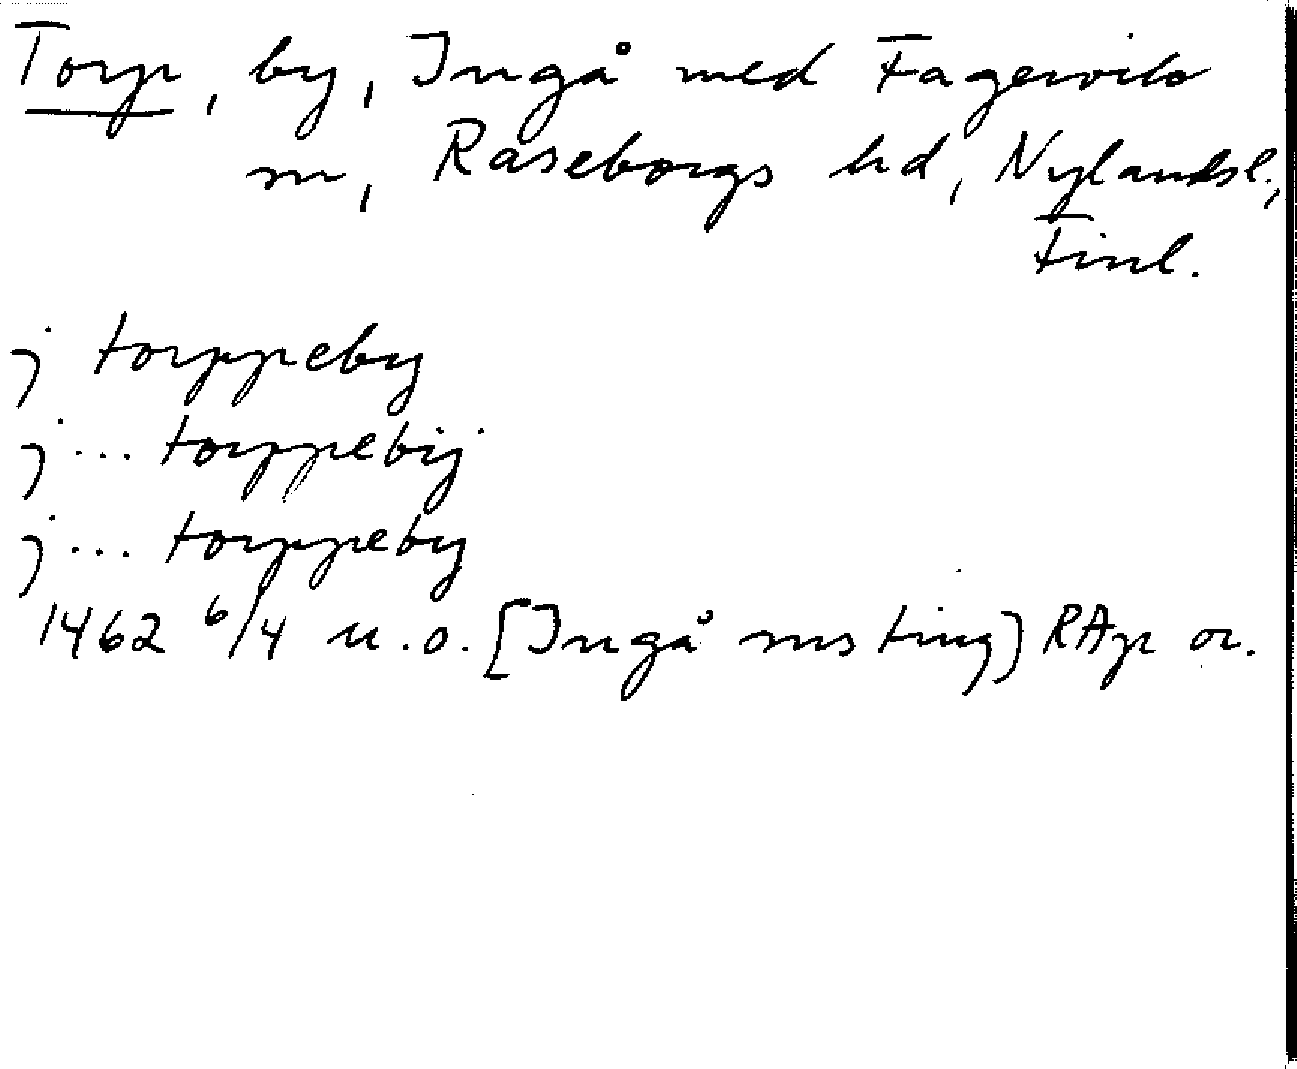 Torp, by, Ingå med Fagervik
sn, Raseborgs hd, Nylandsl.,
Finl.
j torppeby
j... torppebij
j... torppeby
1462 6/4 u.o. [Ingå sns ting] RAp or.